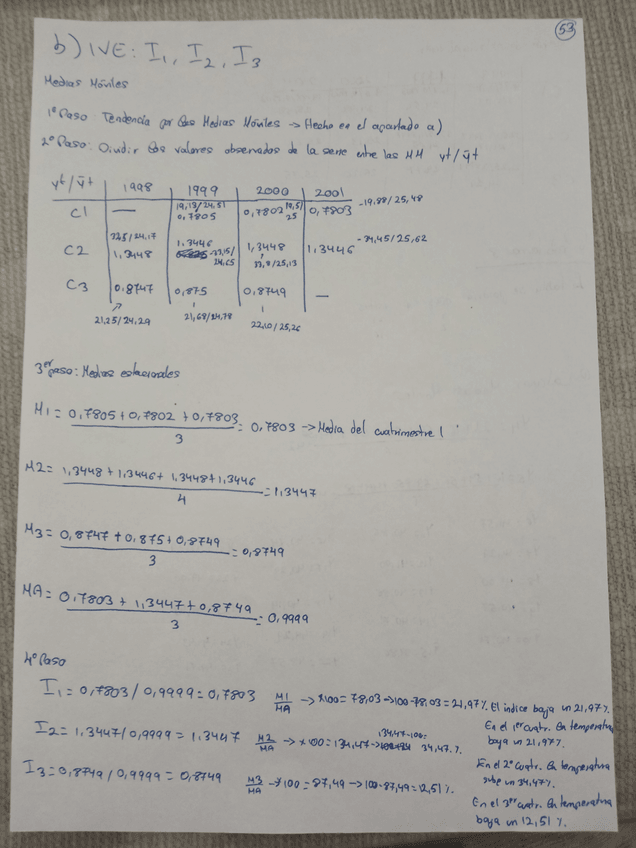 53
b) IVE: I₁, I₂, I₃
Medias Móviles
1º Paso: Tendencia por las Medias Móviles → Hecho en el apartado a)
2º Paso: Dividir los valores observados de la serie entre las MM yt/ȳt
yt/ȳt 1998 1999 2000 2001
C1 — 19,13/24,51 0,7805 0,7802 19,5/25 0,7803 -19,88/25,48
C2 32,5/24,17 1,3448 1,3446 -33,15/24,65 1,3448 33,8/25,13 1,3446 -34,45/25,62
C3 0,8747 0,875 0,8749 —
21,25/24,29 21,68/24,78 22,10/25,26
3er paso: Medias estacionales
M1 = 0,7805 + 0,7802 + 0,7803 / 3 = 0,7803 → Media del cuatrimestre 1
M2 = 1,3448 + 1,3446 + 1,3448 + 1,3446 / 4 = 1,3447
M3 = 0,8747 + 0,875 + 0,8749 / 3 = 0,8749
MA = 0,7803 + 1,3447 + 0,8749 / 3 = 0,9999
4º Paso
I₁ = 0,7803 / 0,9999 = 0,7803 M1/MA → x100 = 78,03 → 100-78,03 = 21,97% El índice baja un 21,97%.
En el 1er cuatr. la temperatura baja un 21,97%
I₂ = 1,3447 / 0,9999 = 1,3447 M2/MA → x100 = 134,47 → 134,47-100= 34,47%.
En el 2º cuatr. la temperatura sube un 34,47%
I₃ = 0,8749 / 0,9999 = 0,8749 M3/MA → x100 = 87,49 → 100-87,49 = 12,51%.
En el 3er cuatr. la temperatura baja un 12,51%.